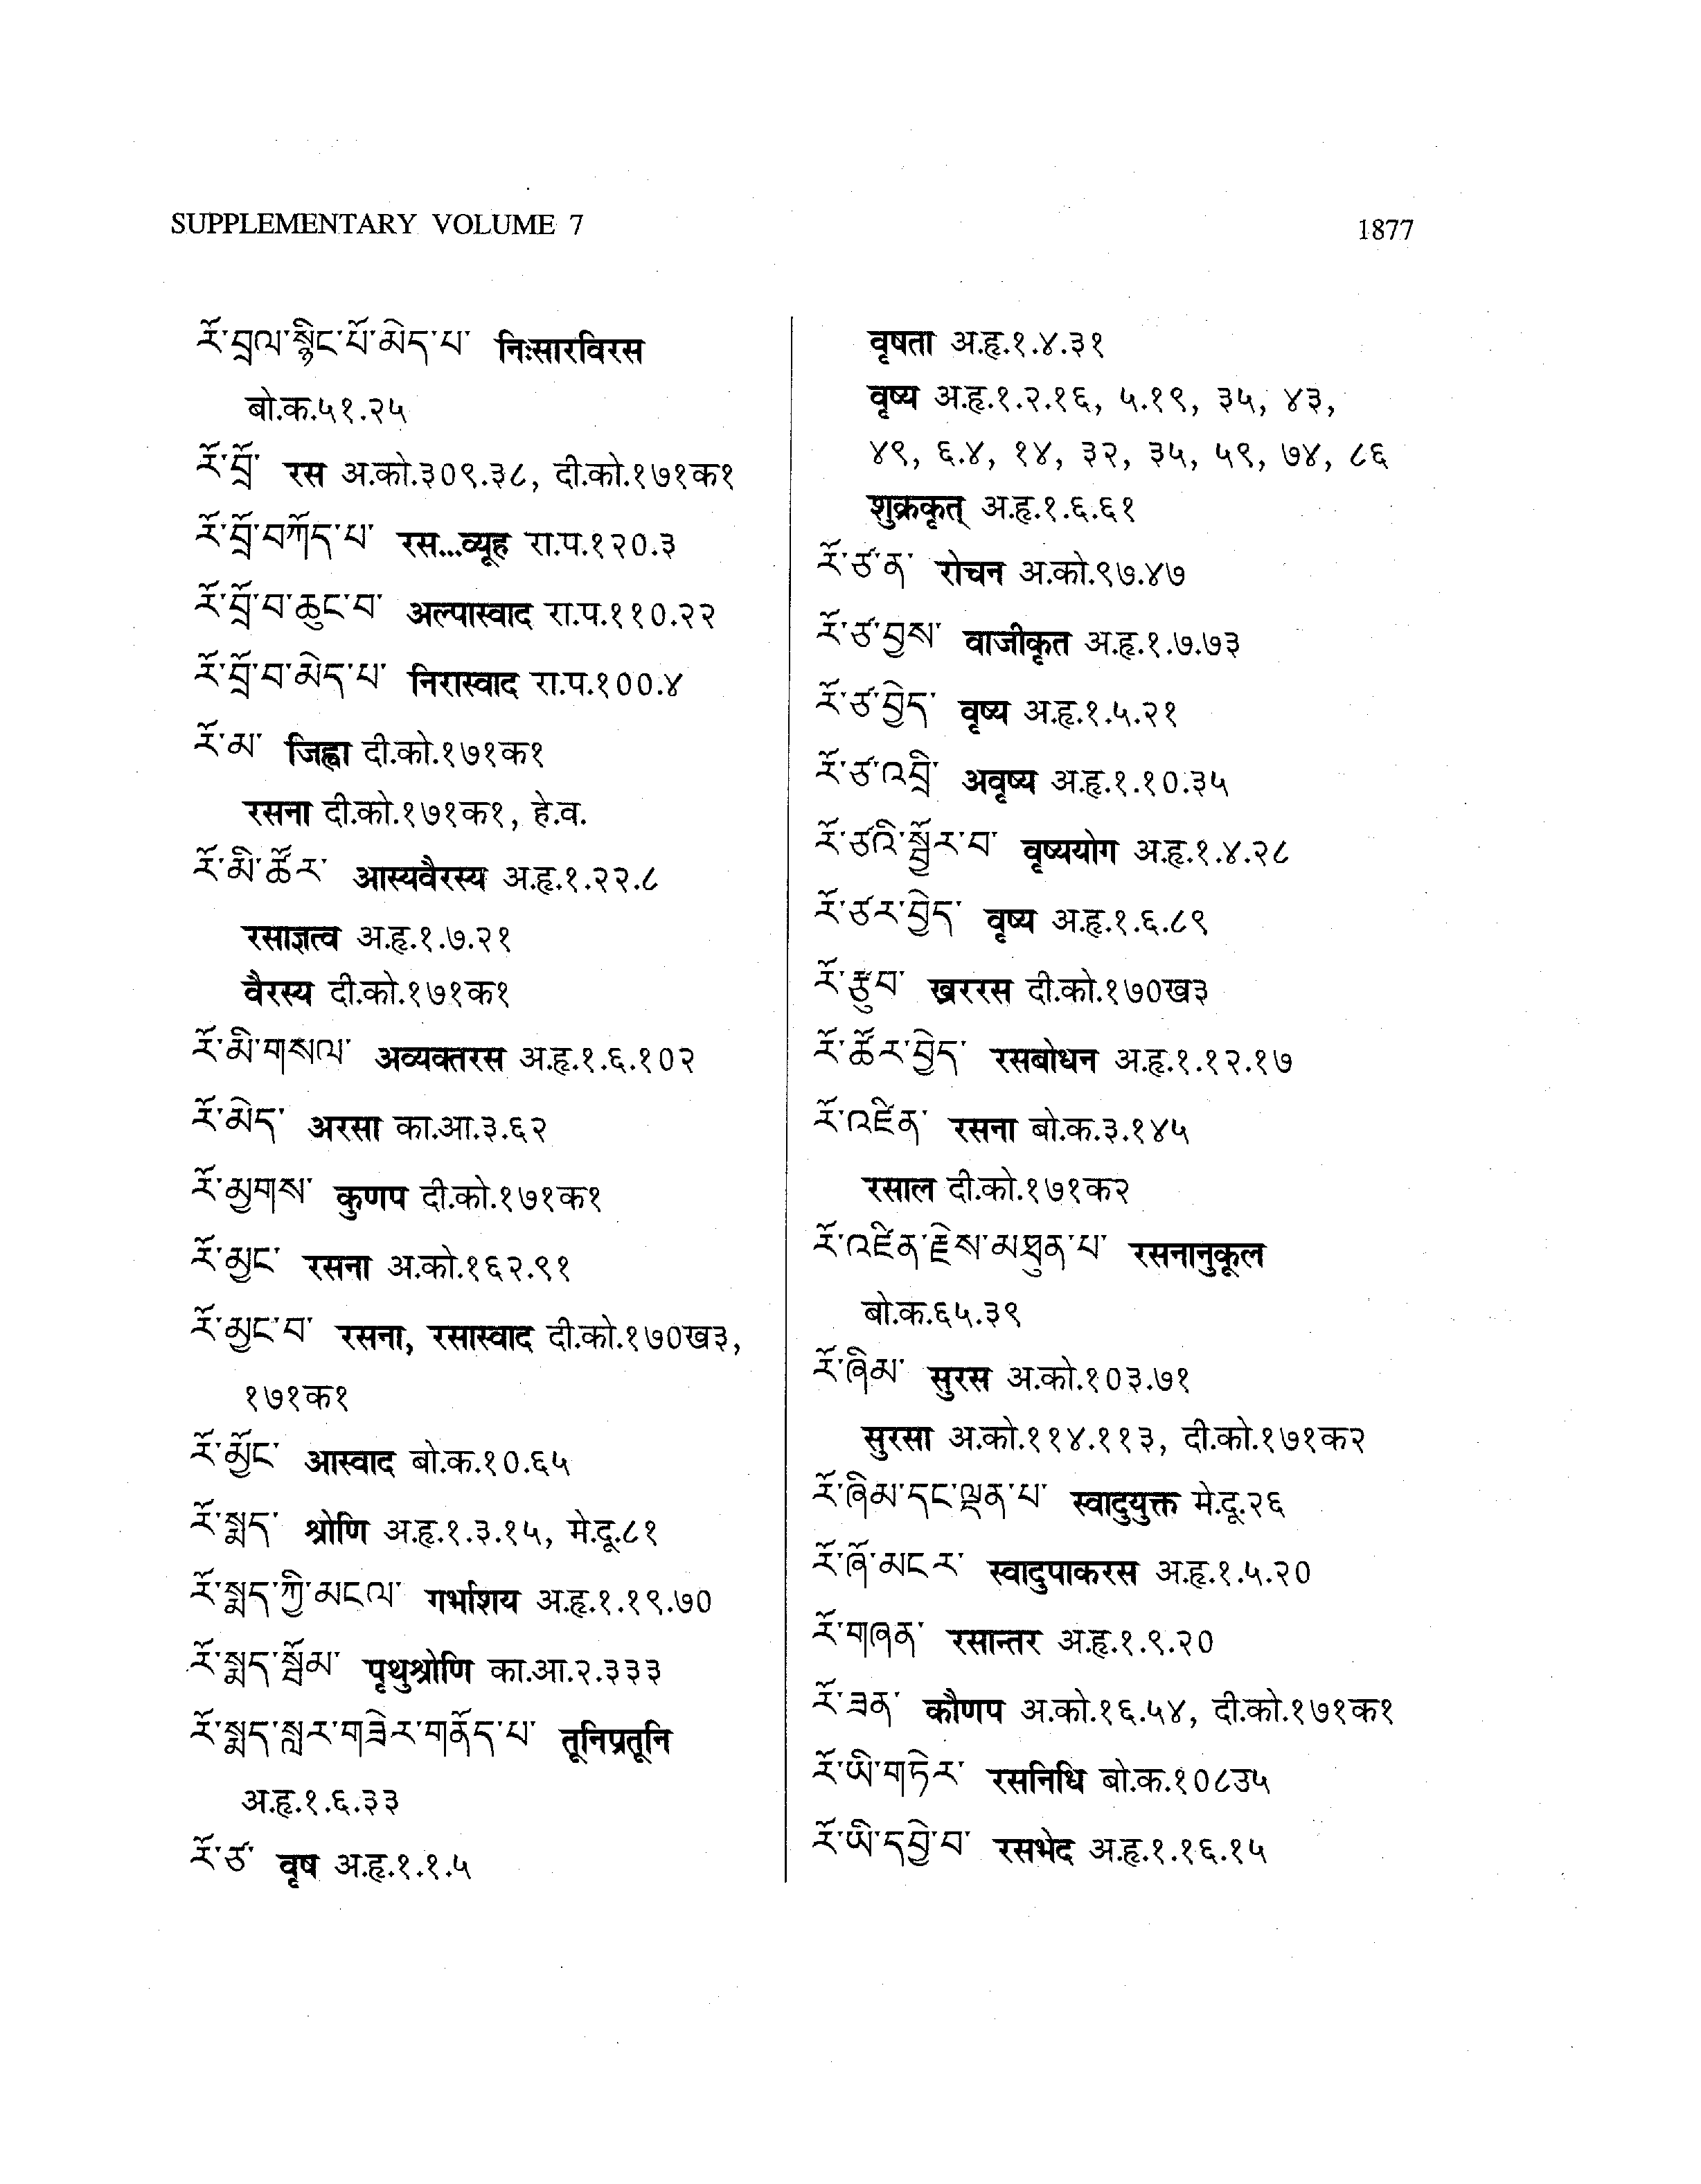 SUPPLEMENTARY VOLUME 7
1877
རོ་བྲལ་སྙིང་པོ་མེད་པ་ निःसारविरस
बो.क.५१.२५
རོ་བྲོ་ रस अ.को.३०९.३८, दी.को.१७१क१
རོ་བྲོ་བཀོད་པ་ रस...व्यूह रा.प.१२०.३
རོ་བྲོ་བ་ཆུང་བ་ अल्पास्वाद रा.प.११०.२२
རོ་བྲོ་བ་མེད་པ་ निरास्वाद रा.प.१००.४
རོ་མ་ जिह्वा दी.को.१७१क१
रसना दी.को.१७१क१, हे.व.
རོ་མི་ཚོར་ आस्यवैरस्य अ.हृ.१.२२.८
रसाज्ञत्व अ.हृ.१.७.२१
वैरस्य दी.को.१७१क१
རོ་མི་གསལ་ अव्यक्तरस अ.हृ.१.६.१०२
རོ་མེད་ अरसा का.आ.३.६२
རོ་མྱགས་ कुणप दी.को.१७१क१
རོ་མྱང་ रसना अ.को.१६२.९१
རོ་མྱང་བ་ रसना, रसास्वाद दी.को.१७०ख३,
१७१क१
རོ་མྱོང་ आस्वाद बो.क.१०.६५
རོ་སྨད་ श्रोणि अ.हृ.१.३.१५, मे.दू.८१
རོ་སྨད་ཀྱི་མངལ་ गर्भाशय अ.हृ.१.१९.७०
རོ་སྨད་སྦོམ་ पृथुश्रोणि का.आ.२.३३३
རོ་སྨད་སླར་གཟེར་གནོད་པ་ तूनिप्रतूनि
अ.हृ.१.६.३३
རོ་ཙ་ वृष अ.हृ.१.१.५
वृषता अ.हृ.१.४.३१
वृष्य अ.हृ.१.२.१६, ५.१९, ३५, ४३,
४९, ६.४, १४, ३२, ३५, ५९, ७४, ८६
शुक्रकृत् अ.हृ.१.६.६१
རོ་ཙ་ན་ रोचन अ.को.९७.४७
རོ་ཙ་བྱས་ वाजीकृत अ.हृ.१.७.७३
རོ་ཙ་བྱེད་ वृष्य अ.हृ.१.५.२१
རོ་ཙ་འབྲི་ अवृष्य अ.हृ.१.१०.३५
རོ་ཙའི་སྦྱོར་བ་ वृष्ययोग अ.हृ.१.४.२८
རོ་ཙར་བྱེད་ वृष्य अ.हृ.१.६.८९
རོ་རྩུབ་ खररस दी.को.१७०ख३
རོ་ཚོར་བྱེད་ रसबोधन अ.हृ.१.१२.१७
རོ་འཛིན་ रसना बो.क.३.१४५
रसाल दी.को.१७१क२
རོ་འཛིན་རྗེས་མཐུན་པ་ रसनानुकूल
बो.क.६५.३९
རོ་ཞིམ་ सुरस अ.को.१०३.७१
सुरसा अ.को.११४.११३, दी.को.१७१क२
རོ་ཞིམ་དང་ལྡན་པ་ स्वादुयुक्त मे.दू.२६
རོ་ཞོ་མངར་ स्वादुपाकरस अ.हृ.१.५.२०
རོ་གཞན་ रसान्तर अ.हृ.१.९.२०
རོ་ཟན་ कौणप अ.को.१६.५४, दी.को.१७१क१
རོ་ཡི་གཏེར་ रसनिधि बो.क.१०८उ५
རོ་ཡི་དབྱེ་བ་ रसभेद अ.हृ.१.१६.१५